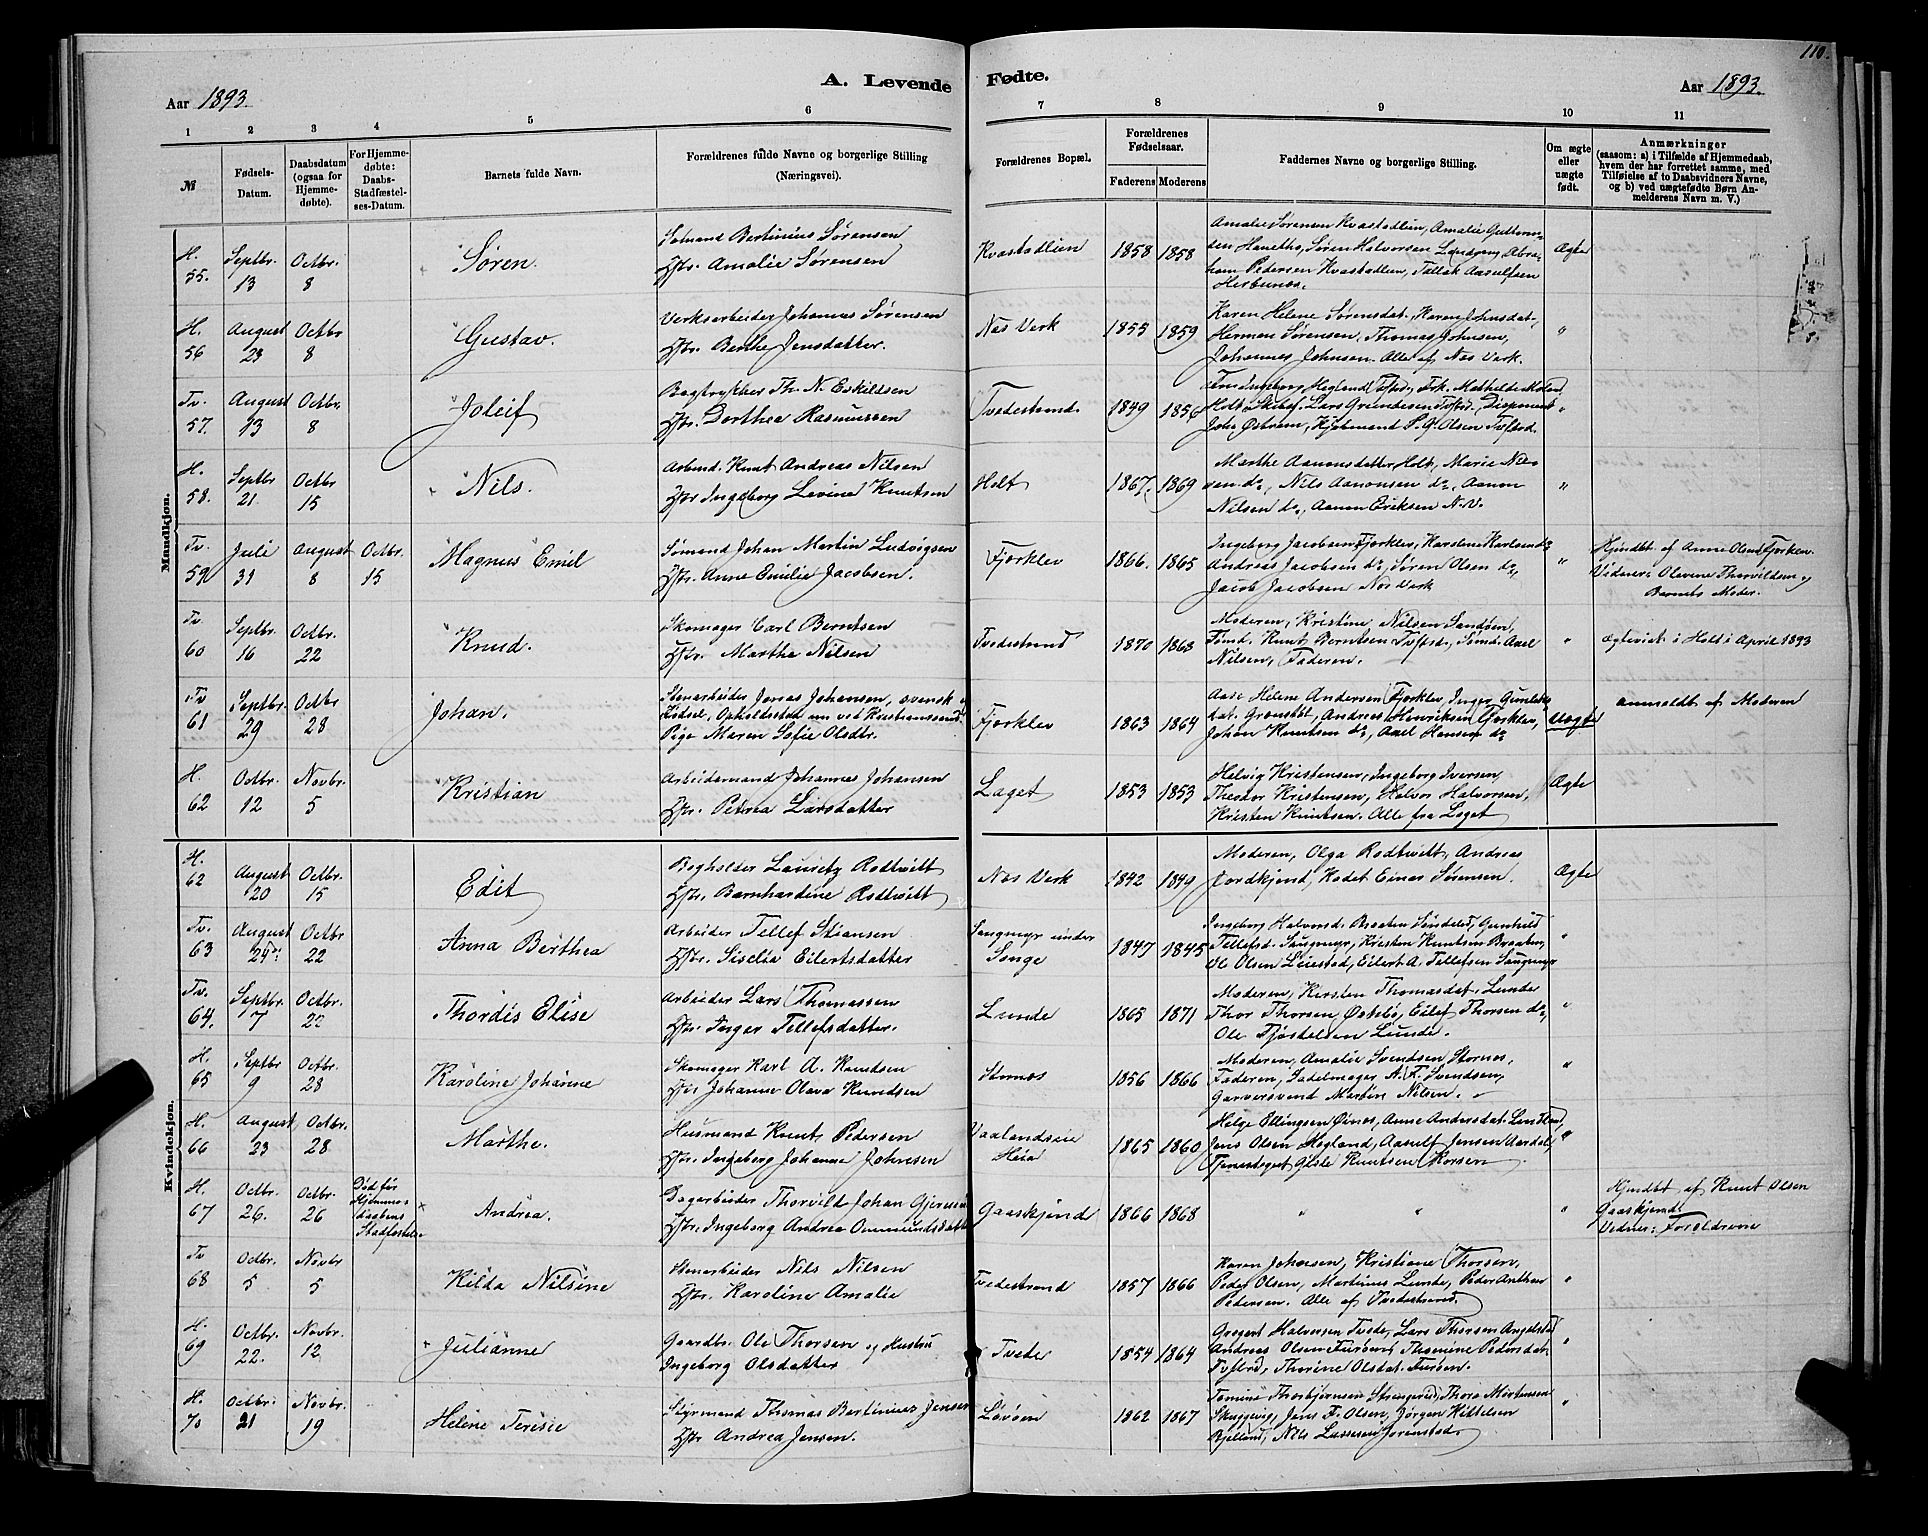 110.
A. Levende Fødte.
Aar 1893. Aar 1893.
1 2 3 4 5 6 7 8 9 10 11
№
Fødsels-Datum.
Daabsdatum (ogsaa for Hjemmedøbte).
For Hjemmedøbte: Daabs-Stadfæstelses-Datum.
Barnets fulde Navn.
Forældrenes fulde Navne og borgerlige Stilling (Næringsvei).
Forældrenes Bopæl.
Forældrenes Fødselsaar.
Faderens Moderens
Faddernes Navne og borgerlige Stilling.
Om ægte eller uægte født.
Anmærkninger
(saasom: a) i Tilfælde af Hjemmedaab, hvem der har forrettet samme, med Tilføielse af to Daabsvidners Navne, og b) ved uægtefødte Børn Anmelderens Navn m. V.)
Mandkjøn.
H. 55. Septbr. 13 Octbr. 8 Søren. Sømand Bertinius Sørensen
Hstr. Amalie Sørensen Kvastadlien 1858 1858 Amalie Sørensen Kvastadlien, Amalie
Søren Halvorsen
Pedersen Kvastadlien, Tellak Aasulfsen Ægte
H. 56 August 23 Octbr 8 Gustav. Verksarbeider Johannes Sørensen
Hstr. Berthe Jensdatter. Nas Verk 1855 1859 Karen Helene Sørensdat., Karen
Herman Sørensen, Thomas Johnsen,
Johannes Johnsen. Alle af Nas Verk. "
Tv. 57. August 13 Octbr. 8 Joleif Bogtrykker Th. N. Eskildsen
Hstr. Dorthea Rasmussen Tvedestrand 1849 1856
Kjøbmand Olsen "
H. 58. Septbr 21. Octbr 15 Nils. Arbmd. Knut Andreas Nilsen
Hstr Ingeborg Levine Knutsen Holt 1867. 1869 Marthe Aanonsdatter Holt, Marie Nilsen do, Nils Aanonsen do, Aanon
Nilsen do, Aanon Eriksen N. V. "
Tv. 59 Juli 31 August 8 Octbr. 15 Magnus Emil Sømand Johan Martin Ludvigsen
Hstr. Anne Emilie Jacobsen. Fjorklev 1866. 1865 Ingeborg Jacobsen Fjorklev, Karoline Karlsen do
Andreas Jacobsen do, Søren Olsen do,
Jacob Jacobsen Nas Verk " Hjmdbt. af Anne Olsen Fjorklev.
Vidner: Olevine Thorvildsen og
Barnets Moder.
Tv 60 Septbr. 16 Octbr. 22 Knud. Skomager Carl Berntsen
Hstr. Marthe Nilsen Tvedestrand 1870 1868 Moderen, Kristine Nilsen Sandøen,
Knut Berntsen Axel
Nilsen, Faderen. " Ægteviet i Holt i April 1893
Tv 61 Septbr. 29 Octbr 28 Johan. Stenarbeider Jonas Johansen, svensk
Opholdssted nu ved Kristianssand
Pige Maren Sofie Olsdtr. Fjorklev 1863 1864 Aase Helene Andersen Fjorklev, Inger
Andreas Henriksen Fjorklev,
Johan Knutsen do, Axel Hansen do Uægte anmeldt af Moderen
H. 62 Octbr. 12 Novbr. 5 Kristian Arbeidermand Johannes Johansen
Hstr. Petrea Larsdatter Laget 1853 1853 Helvig Kristensen, Ingeborg Iversen,
Theodor Kristensen, Halvor Halvorsen,
Kristen Knutsen. Alle fra Laget Ægte
Kvindekjøn.
H. 62 August 20 Octbr. 15 Edit Bogholder Lauritz Rodtwitt
Hstr. Barnhardine Rodtwitt Nas Verk 1842 1849 Moderen, Olga Rodtwitt, Andreas
Jordkjend, Kadet Einar Sørensen. Ægte
Tv. 63 August 24de Octbr 22 Anna Berthea Arbeider Tellef Stiansen
Hstr. Siselia Eilertsdatter Saugmyr under Songe 1847 1845 Ingeborg Halvorsd. Braaten Søndeled, Gunhild
Tellefsd. Saugmyr, Kristen Knutsen Braaten,
Ole Olsen Leiestad, Eilert A. Tellefsen Saugmyr "
Tv. 64. Septbr. 7 Octbr. 22 Thordis Elise Arbeider Lars Thomassen
Hstr. Inger Tellefsdatter. Lunde 1865 1871 Moderen, Kirsten Thomasdat. Lunde
Thor Thorsen Østebø, Eilef Thorsen do,
Ole Tjostelsen Lunde. "
H. 65 Septbr 9 Octbr. 28 Karoline Johanne Skomager Karl A. Knudsen
Hstr Johanne Olava Knudsen Stornes 1856 1866 Moderen, Amalie Svendsen Stornes,
Faderen, Sadelmager A. F. Svendsen,
Garversvend Martin Nilsen. "
H. 66 August 23 Octbr. 28 Marthe. Husmand Knut Pedersen
Hstr. Ingeborg Johanne Johnsen Vaalandseie Heia 1865 1860 Helge Ellingsen Øines, Anne Andersdat.
Jens Olsen Hegland, Aasulf Jensen
Gisle Knutsen "
H. 67 Octbr. 26. Octbr. 26 Død før Hjemmedaabens Stadfæstelse Andrea. Dagarbeider Thorvild Johan
Hstr. Ingeborg Andrea Gaaskjend 1866 1868 " " " Hjmdbt af Knut Olsen
Gaaskjend.
Vidner: Forældrene
Tv 68 Octbr. 5 Novbr 5 Kilda Nilsine Stenarbeider Nils Nilsen
Hstr. Karoline Amalie Tvedestrand 1857 1866 Karen Johnsen, Kristiane Thorsen,
Peder Olsen, Martinus Lunde, Peder Anthon
Pedersen. Alle af Tvedestrand. "
H. 69 Octbr. 22. Novbr. 12 Julianne Gaardbr. Ole Thorsen og Hustru
Ingeborg Olsdatter Tvede 1854 1864 Gregert Halvorsen Tvede, Lars Thorsen Angelstad
Andreas Olsen Furøen, Thomine Pedersdat.
Thorine Olsdat. Furøen. "
H. 70 Octbr. 21 Novbr. 19 Helene Teresie Styrmand Thomas Bertinius Jensen
Hstr Andrea Jensen. Løvøen 1862 1867 Tomine Thorbjørnsen Thora Mortensen
Jens F. Olsen, Jørgen Kittelsen
Bjelland, Nils Lassesen "